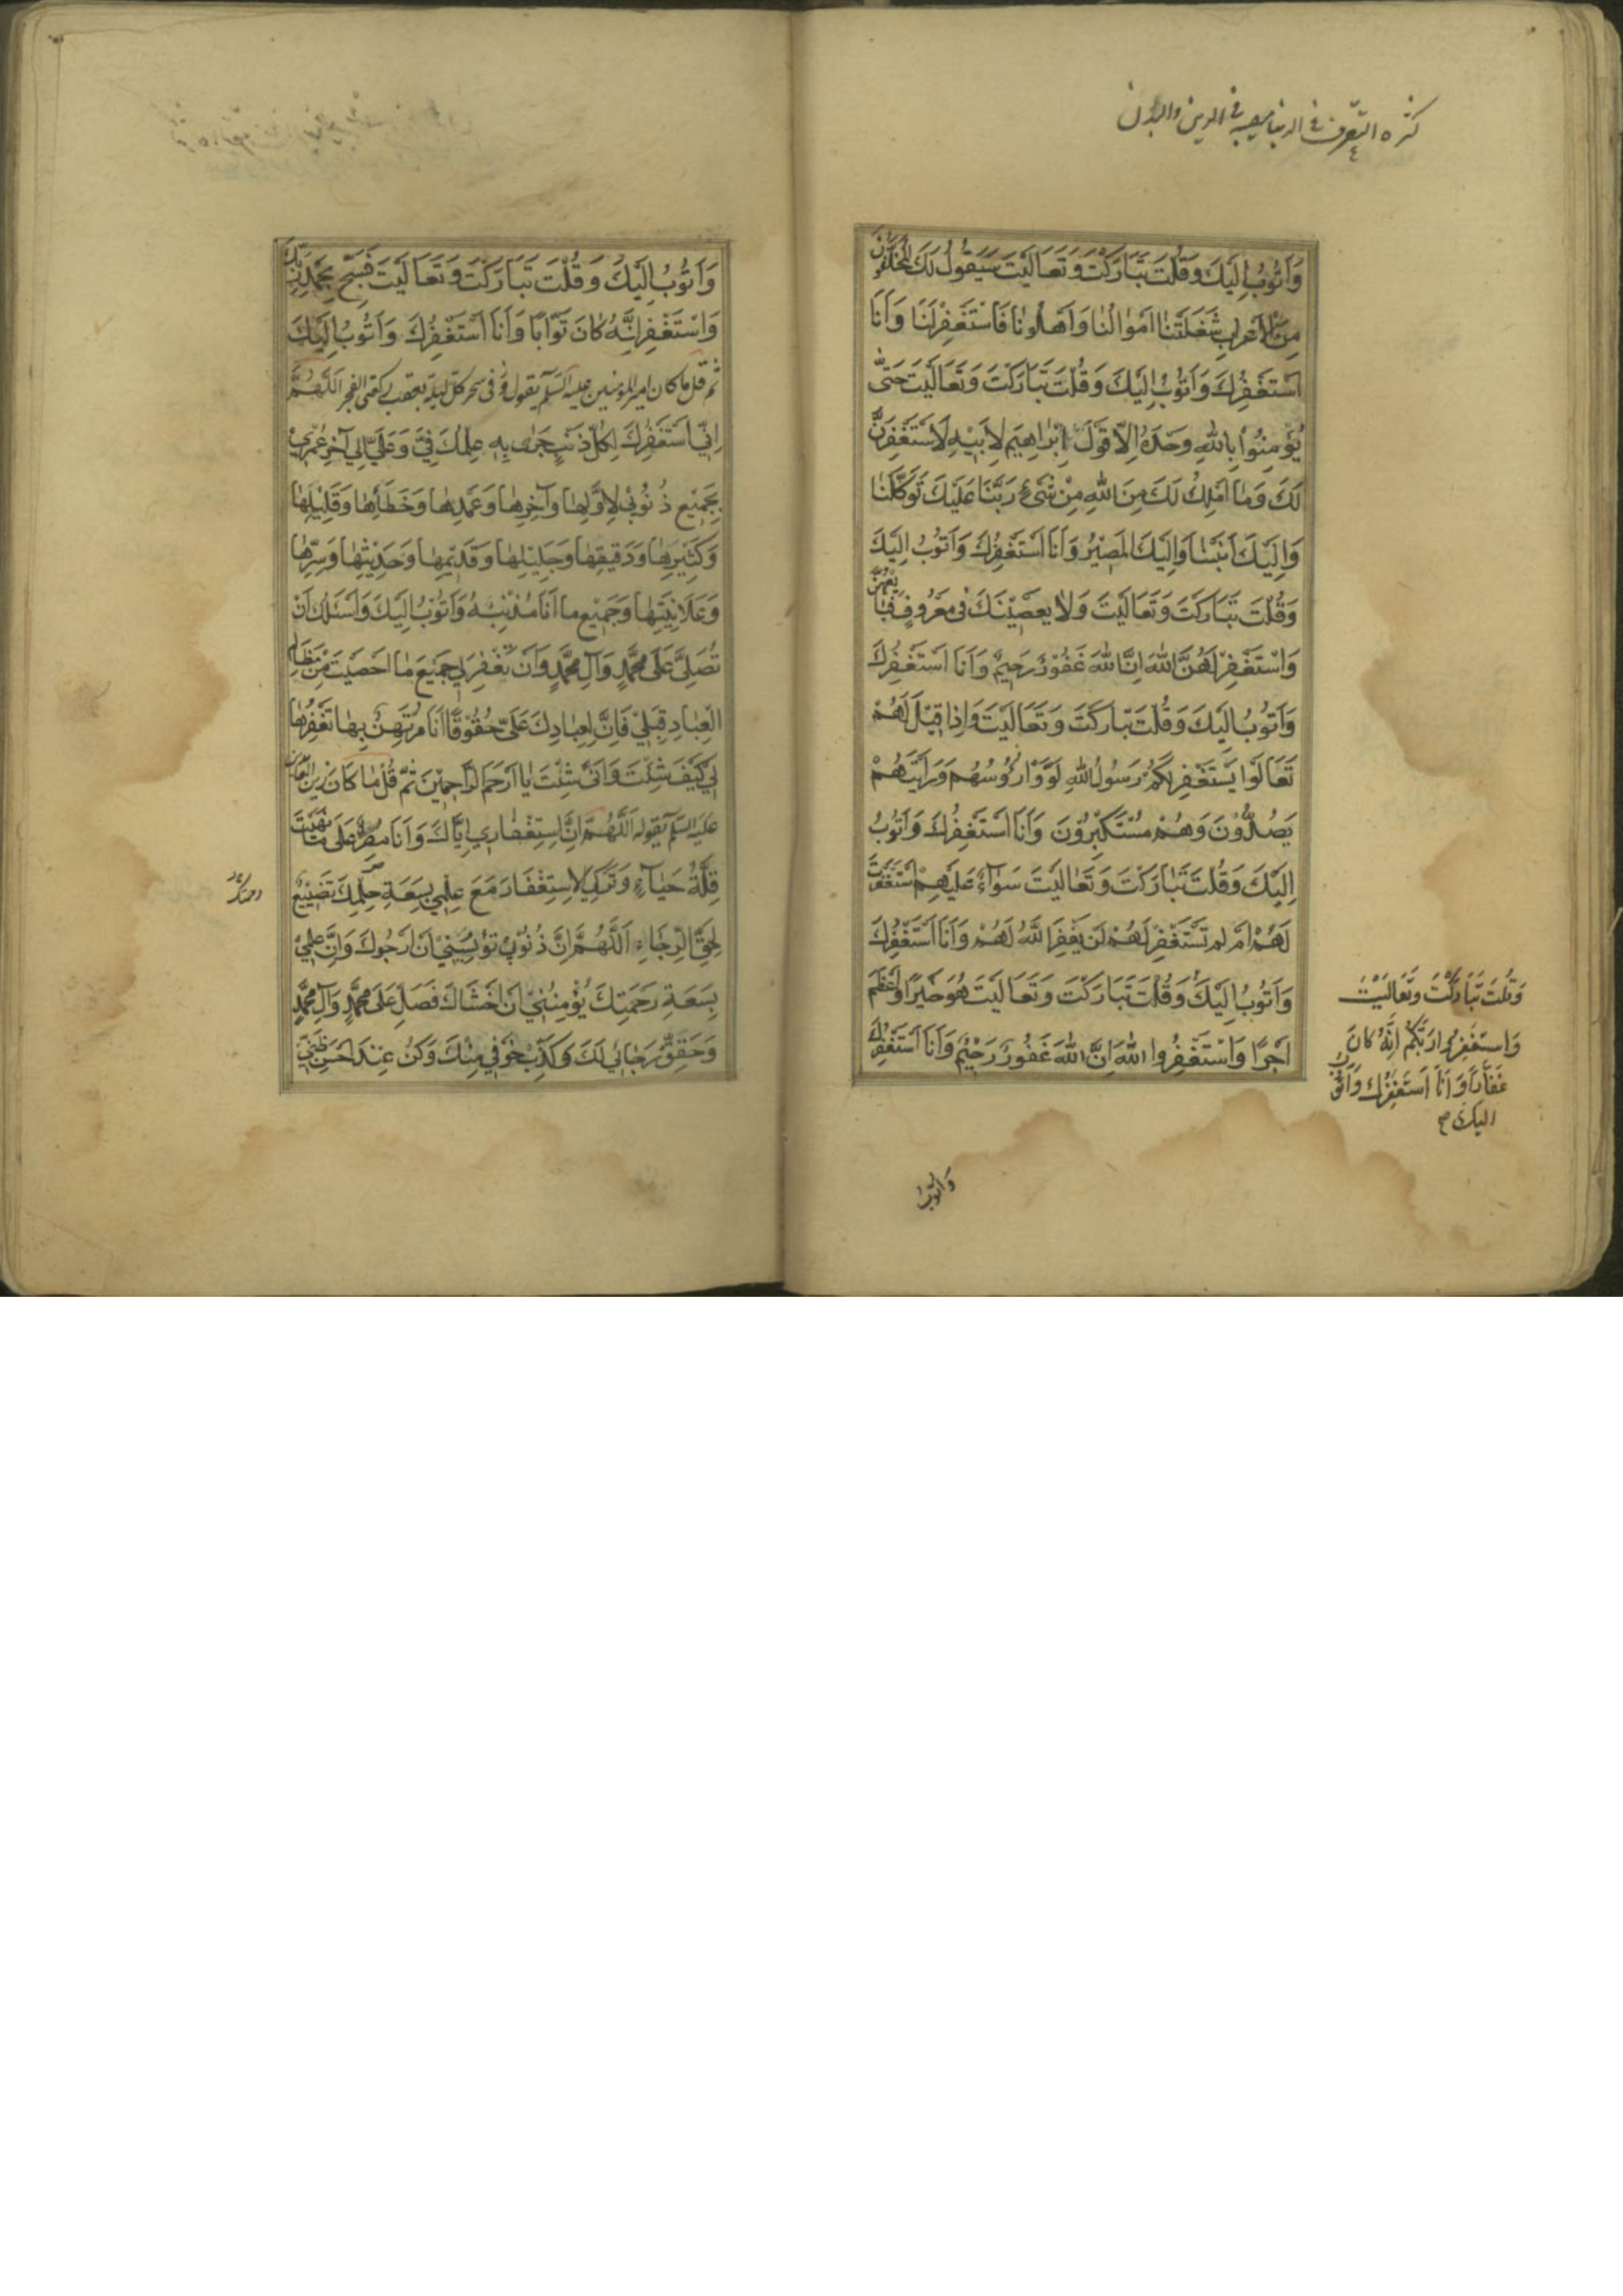 كثره التصرف في الدنيا في الدين والبدن
وَاَتُوبُ اِلَيْكَ وَقُلْتَ تَبَارَكْتَ وَتَعَالَيْتَ سَيَقُولُ لَكَ الْمُخَلَّفُونَ
مِنَ الْاَعْرابِ شَغَلَتْنا اَمْوالُنا وَاَهْلُونا فَاسْتَغْفِرْ لَنا وَاَنَا
اَسْتَغْفِرُكَ وَاَتُوبُ اِلَيْكَ وَقُلْتَ تَبَارَكْتَ وَتَعَالَيْتَ حَتّى
يُؤْمِنُوا بِاللهِ وَحْدَهُ اِلّا قَوْلَ اِبْراهِيمَ لِاَبِيهِ لَاَسْتَغْفِرَنَّ
لَكَ وَما اَمْلِكُ لَكَ مِنَ اللهِ مِنْ شَيْءٍ رَبَّنَا عَلَيْكَ تَوَكَّلْنا
وَاِلَيْكَ اَنَبْنا وَاِلَيْكَ الْمَصِيْرُ وَاَنَا اَسْتَغْفِرُكَ وَاَتُوبُ اِلَيْكَ
وَقُلْتَ تَبَارَكْتَ وَتَعَالَيْتَ وَلا يَعْصِيْنَكَ فى مَعْرُوفٍ فَبايِعْهُنَّ
وَاسْتَغْفِرْ لَهُنَّ اللهَ اِنَّ اللهَ غَفُوْرٌ رَحِيمٌ وَاَنَا اَسْتَغْفِرُكَ
وَاَتُوبُ اِلَيْكَ وَقُلْتَ تَبارَكْتَ وَتَعَالَيْتَ وَاِذا قِيْلَ لَهُمْ
تَعَالَوْا يَسْتَغْفِرْ لَكُمْ رَسُولُ اللهِ لَوَّوْا رُؤُسَهُمْ وَرَاَيْتَهُمْ
يَصُدُّوْنَ وَهُمْ مُسْتَكْبِرُوْنَ وَاَنَا اَسْتَغْفِرُكَ وَاَتُوبُ
اِلَيْكَ وَقُلْتَ تَبَارَكْتَ وَتَعَالَيْتَ سَوآءٌ عَلَيْهِمْ اَسْتَغْفَرْتَ
لَهُمْ اَمْ لَمْ تَسْتَغْفِرْ لَهُمْ لَنْ يَغْفِرَ اللهُ لَهُمْ وَاَنَا اَسْتَغْفِرُكَ
وَاَتُوبُ اِلَيْكَ وَقُلْتَ تَبَارَكْتَ وَتَعَالَيْتَ هُوَ خَيْرًا وَاَعْظَمَ
اَجْرًا وَاسْتَغْفِرُوا اللهَ اِنَّ اللهَ غَفُورٌ رَحِيْمٌ وَاَنَا اَسْتَغْفِرُكَ
وَقُلْتَ تَبَارَكْتَ وَتَعَالَيْتَ
وَاسْتَغْفِرُوا رَبَّكُمْ اِنَّهُ كانَ
غَفّاراً وَاَنَا اَسْتَغْفِرُكَ وَاَتُوبُ
اليك صح
وَاَتُوبُ
وَاَتُوبُ اِلَيْكَ وَقُلْتَ تَبَارَكْتَ وَتَعَالَيْتَ فَسَبِّحْ بِحَمْدِ رَبِّكَ
وَاسْتَغْفِرْهُ اِنَّهُ كانَ تَوّابًا وَاَنَا اَسْتَغْفِرُكَ وَاَتُوبُ اِلَيْكَ
ثم قل ما كان امير المؤمنين عليه السلم يقوله فى سحر كل ليلة بعقب ركعتى الفجر اَللّهُمَّ
اِنّى اَسْتَغْفِرُكَ لِكُلِّ ذَنْبٍ جَرى بِهِ عِلْمُكَ فِيَّ وَعَلَيَّ اِلى آخِرِ عُمْرِي
بِجَمِيْعِ ذُنُوْبي لِاَوَّلِها وَآخِرِها وَعَمْدِها وَخَطَأِها وَقَلِيْلِها
وَكَثِيْرِها وَدَقِيقِها وَجَلِيْلِها وَقَدِيْمِها وَحَدِيْثِها وَسِرِّها
وَعَلانِيَتِها وَجَمِيْعِ ما اَنَا مُذْنِبُهُ وَاَتُوْبُ اِلَيْكَ وَاَسْئَلُكَ اَنْ
تُصَلِّىَ عَلى مُحَمَّدٍ وَآلِ مُحَمَّدٍ وَاَنْ تَغْفِرَ لِي جَمِيْعَ ما اَحْصَيْتَ مِنْ مَظالِمِ
الْعِبادِ قِبَلِيْ فَاِنَّ لِعِبادِكَ عَلَيَّ حُقُوْقًا اَنَا مُرْتَهِنٌ بِها تَغْفِرُها
لِيْ كَيْفَ شِئْتَ وَاَنّى شِئْتَ يا اَرْحَمَ الرّاحِمِيْنَ ثُمَّ قُلْ ما كَانَ زين العابدين
عليه السلم يقوله اَللّهُمَّ اِنَّ اسْتِغْفاري اِيّاكَ وَاَنَا مُصِرٌّ عَلى ما نَهَيْتَ
قِلَّةُ حَيآءٍ وَتَرْكِيَ الْاِسْتِغْفارَ مَعَ عِلْمِي بِسَعَةِ حِلْمِكَ تَضْيِيْعٌ
لِحَقِّ الرَّجاءِ اَللّهُمَّ اِنَّ ذُنُوْبي تُؤْيِسُنِيْ اَنْ اَرْجُوكَ وَاِنَّ عِلْمِيْ
بِسَعَةِ رَحْمَتِكَ يُؤْمِنُنِيْ اَنْ اَخْشاكَ فَصَلِّ عَلى مُحَمَّدٍ وَآلِ مُحَمَّدٍ
وَحَقِّقْ رَجائي لَكَ وَكَذِّبْ خَوْفي مِنْكَ وَكُنْ عِنْدَ اَحْسَنِ ظَنّي
رحمتك